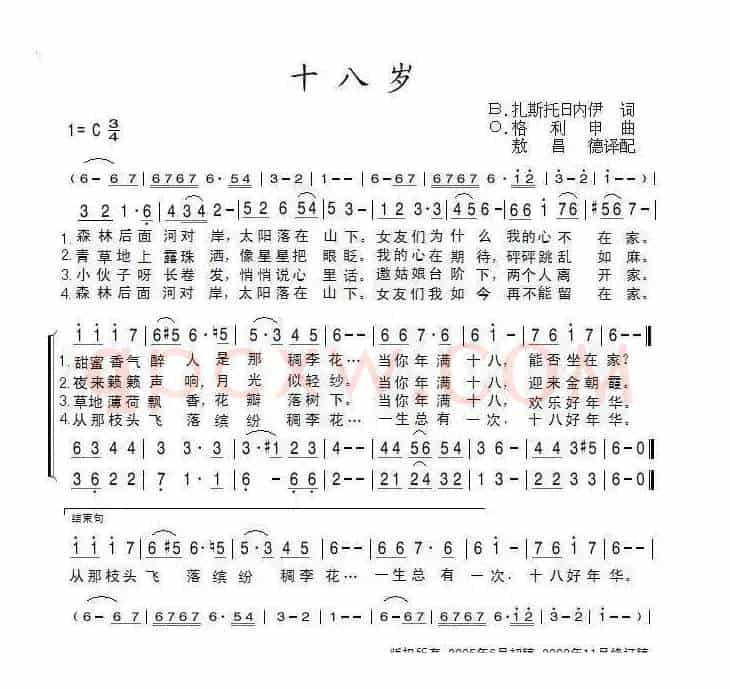 十八岁
B.扎斯托日内伊 词
1=C 3/4
O.格利申 曲
敖昌德译配
(6-67|6767 6·54|3-2|1--|6-67|6767 6·12|3-2|1--)|
32 1·6|434 2-|52 654|53-|11 3|456 1-|66 1 76|#567-|
1.森林后面 河对 岸，太阳落在 山下。女友们为 什么 我的心不 在家。
2.青草地上 露珠 洒，像星星把 眼眨。我的心在 期待，砰砰跳乱 如麻。
3.小伙子呀 长卷 发，悄悄说心 里话。邀姑娘台 阶下，两个人离 开家。
4.森林后面 河对 岸，太阳落在 山下。女友们我 如今 再不能留 在家。
1117|6#5 6·♮5|5·3 4|3--|667|6 1-|7617|6--
1.甜蜜香气 醉 人是那 稠李花… 当你年满 十八， 能否坐在家？
2.夜来簌簌 声 响，月光 似轻纱。当你年满 十八， 迎来金朝霞。
3.草地薄荷 飘 香，花瓣 落树下。当你年满 十八， 欢乐好年华。
4.从那枝头 飞 落缤纷 稠李花… 一生总有 一次，十八好年华。
6344|3 3·3|3·#123|6--|44 56|54-|443#5|6-0
3622|7 1·1|6·661|3--|2234|21-|2233|6-0
结束句
1117|6#5 6·♮5|5·3 4|3--|667|6 1-|7617|6--|
从那枝头 飞 落缤纷 稠李花… 一生总有 一次，十八好年华。
(6-67|6767 6·54|3-2|1--|6-67|6767 6·12|3-2|1--)